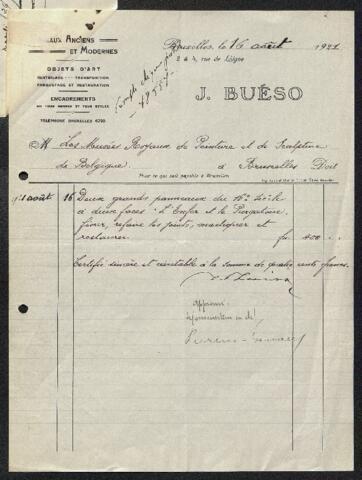 AUX ANCIENS
ET MODERNES
OBJETS D'ART
RENTOILAGE TRANSPOSITION
PARQUETAGE ET RESTAURATION
ENCADREMENTS
TÉLÉPHONE BRUXELLES 6293
Bruxelles, le 16 août 1921
2 & 4, rue de Liégne
J. BUÉSO
M Les Musées Royaux de Peinture et de Sculpture
de Belgique à Bruxelles Doit
Pour ce qui suit payable à Bruxelles
août 16 Deux grands panneaux du 16e siècle
à deux faces: l'Enfer et le Purgatoire,
fixer, refaire les joints, mastiquer et
restaurer fr. 400 —
Certifié sincère et véritable à la somme de quatre cents francs.